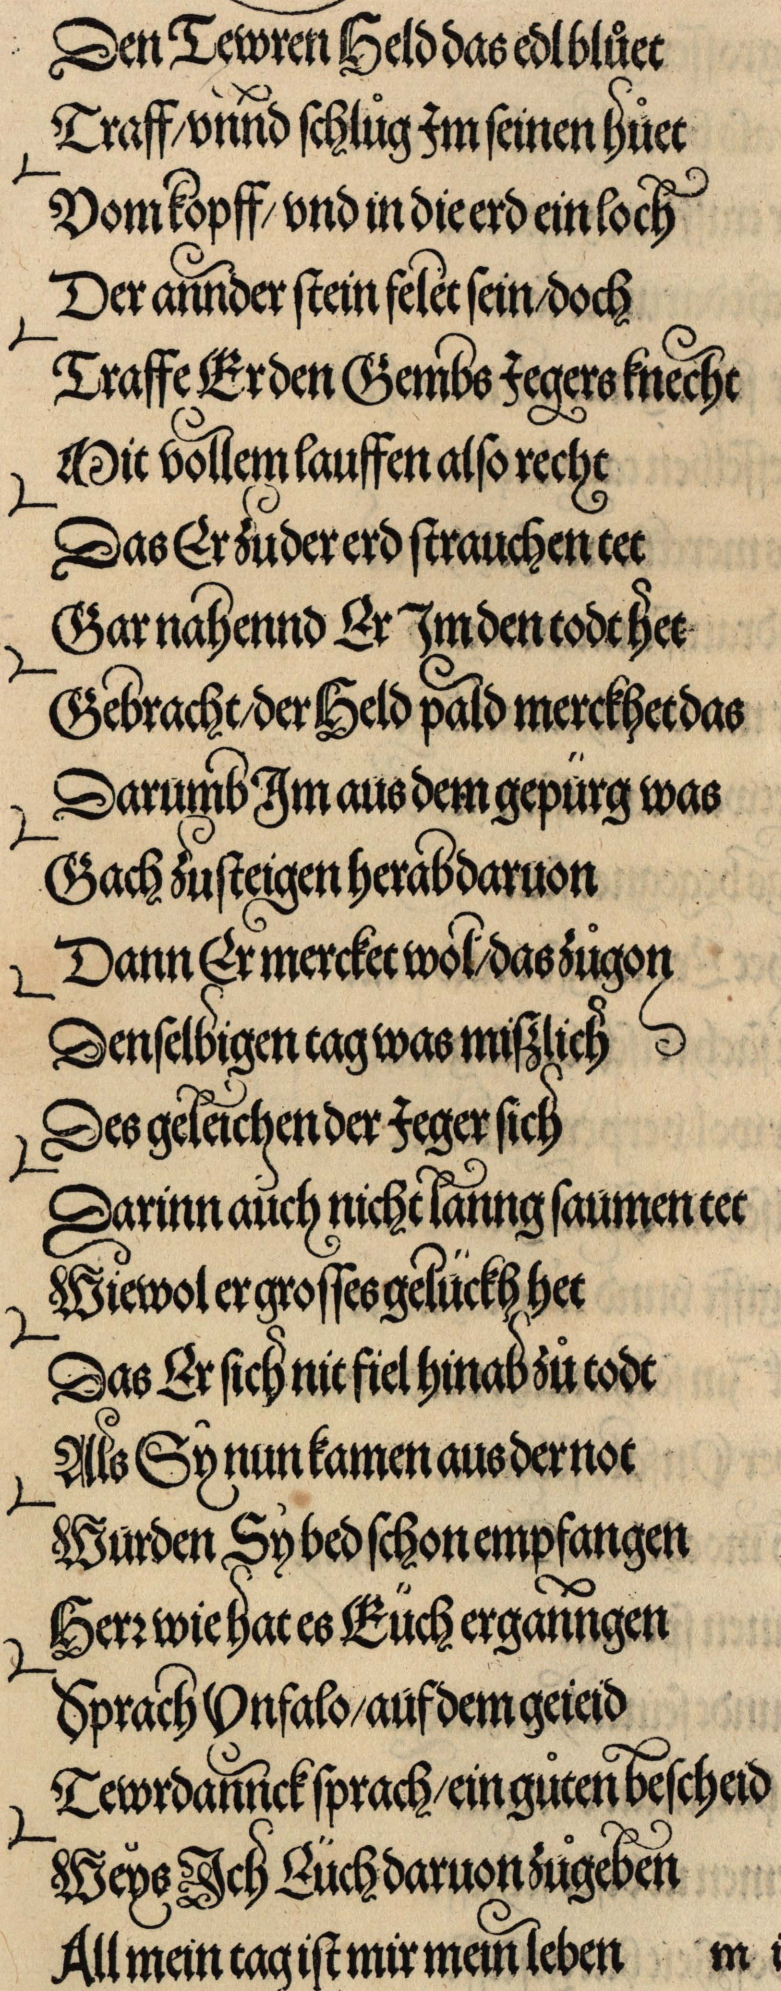 Den Tewren Held das edl blůet
Traff/vnnd schlůg Im seinen hůet
Vom kopff/vnd in die erd ein loch
Der annder stein felet sein/doch
Traff Er den Gembs Jegers knecht
Mit vollem lauffen also recht
Das Er zu der erd strauchen tet
Gar nahennd Er Im den todt het
Gebracht/der Held pald merckhet das
Darumb Im aus dem gepürg was
Gach zusteigen herab daruon
Dann Er mercket wol/das zůgon
Denselbigen tag was mißlich
Des geleichen der Jeger sich
Darinn auch nicht lanng saumen tet
Wiewol er grosses gelückh het
Das Er sich nit fiel hinab zů todt
Als Sy nun kamen aus der not
Wurden Sy bed schon empfangen
Herr wie hat es Eüch erganngen
Sprach Vnfalo/auf dem geieid
Tewrdannck sprach/ein gůten bescheid
Weys Ich Eüch daruon zůgeben
All mein tag ist mir mein leben m i